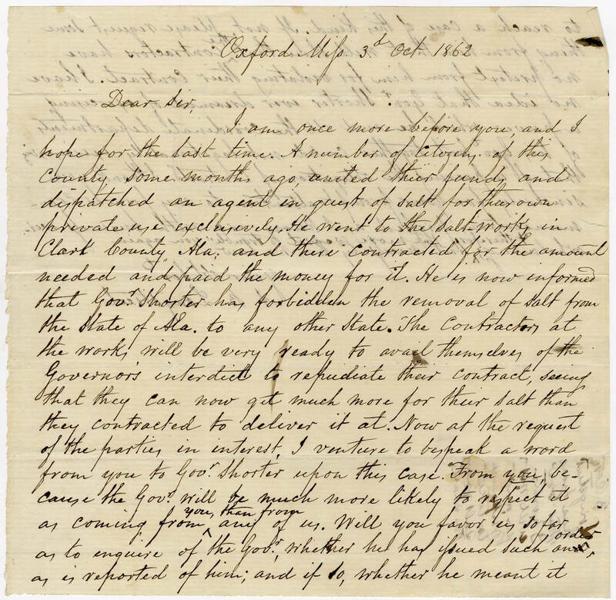 Oxford Miss. 3d Oct 1862
Dear Sir,
I am once more before you, and I
hope for the last time. A number of Citizens of this
County some months ago, united their funds and
dispatched an agent in quest of salt for their own
private use exclusively. He went to the salt works in
Clark County Ala. and there contracted for the amount
needed and paid the money for it. He is now informed
that Govr. Shorter has forbidden the removal of salt from
the State of Ala. to any other State. The Contractors at
the works, will be very ready to avail themselves of the
Governors interdict to repudiate their contract, seeing
that they can now get much more for their salt than
they contracted to deliver it at. Now at the request
of the parties in interest, I venture to bespeak a word
from you to Govr. Shorter upon this case. From you, be-
cause the Govr. will be much more likely to respect it
as coming from you, than from any of us. Will you favor us so far
as to enquire of the Govr., whether he has issued such an order,
as is reported of him; and if so, whether he meant it